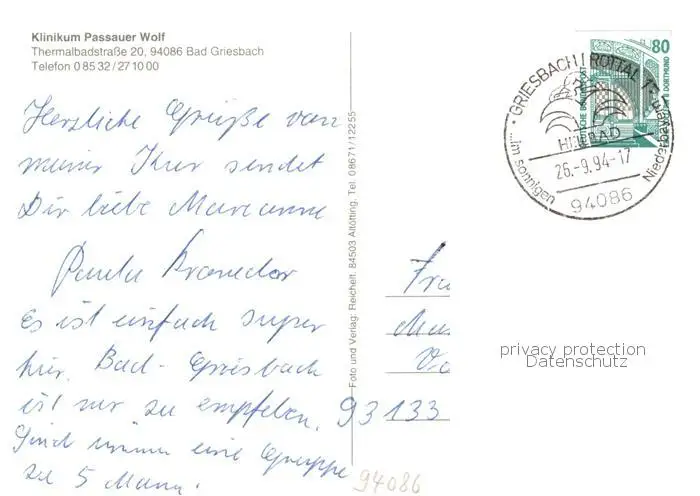 Klinikum Passauer Wolf
Thermalbadstraße 20, 94086 Bad Griesbach
Telefon 0 85 32 / 27 10 00
Herzliche Grüße von
meiner Kur sendet
Dir liebe Marianne
Paula
Es ist einfach super
hier. Bad-Griesbach
ist nur zu empfehlen.
Sind immer eine Gruppe
zu 5 Mann.
Foto und Verlag: Reichelt, 84503 Altötting, Tel. 08671/12255
80
DEUTSCHE BUNDESPOST
DORTMUND
GRIESBACH I ROTTAL 1
26.-9.94-17
94086
...im sonnigen
Niederbayern
Fra
93133
94086
privacy protection
Datenschutz